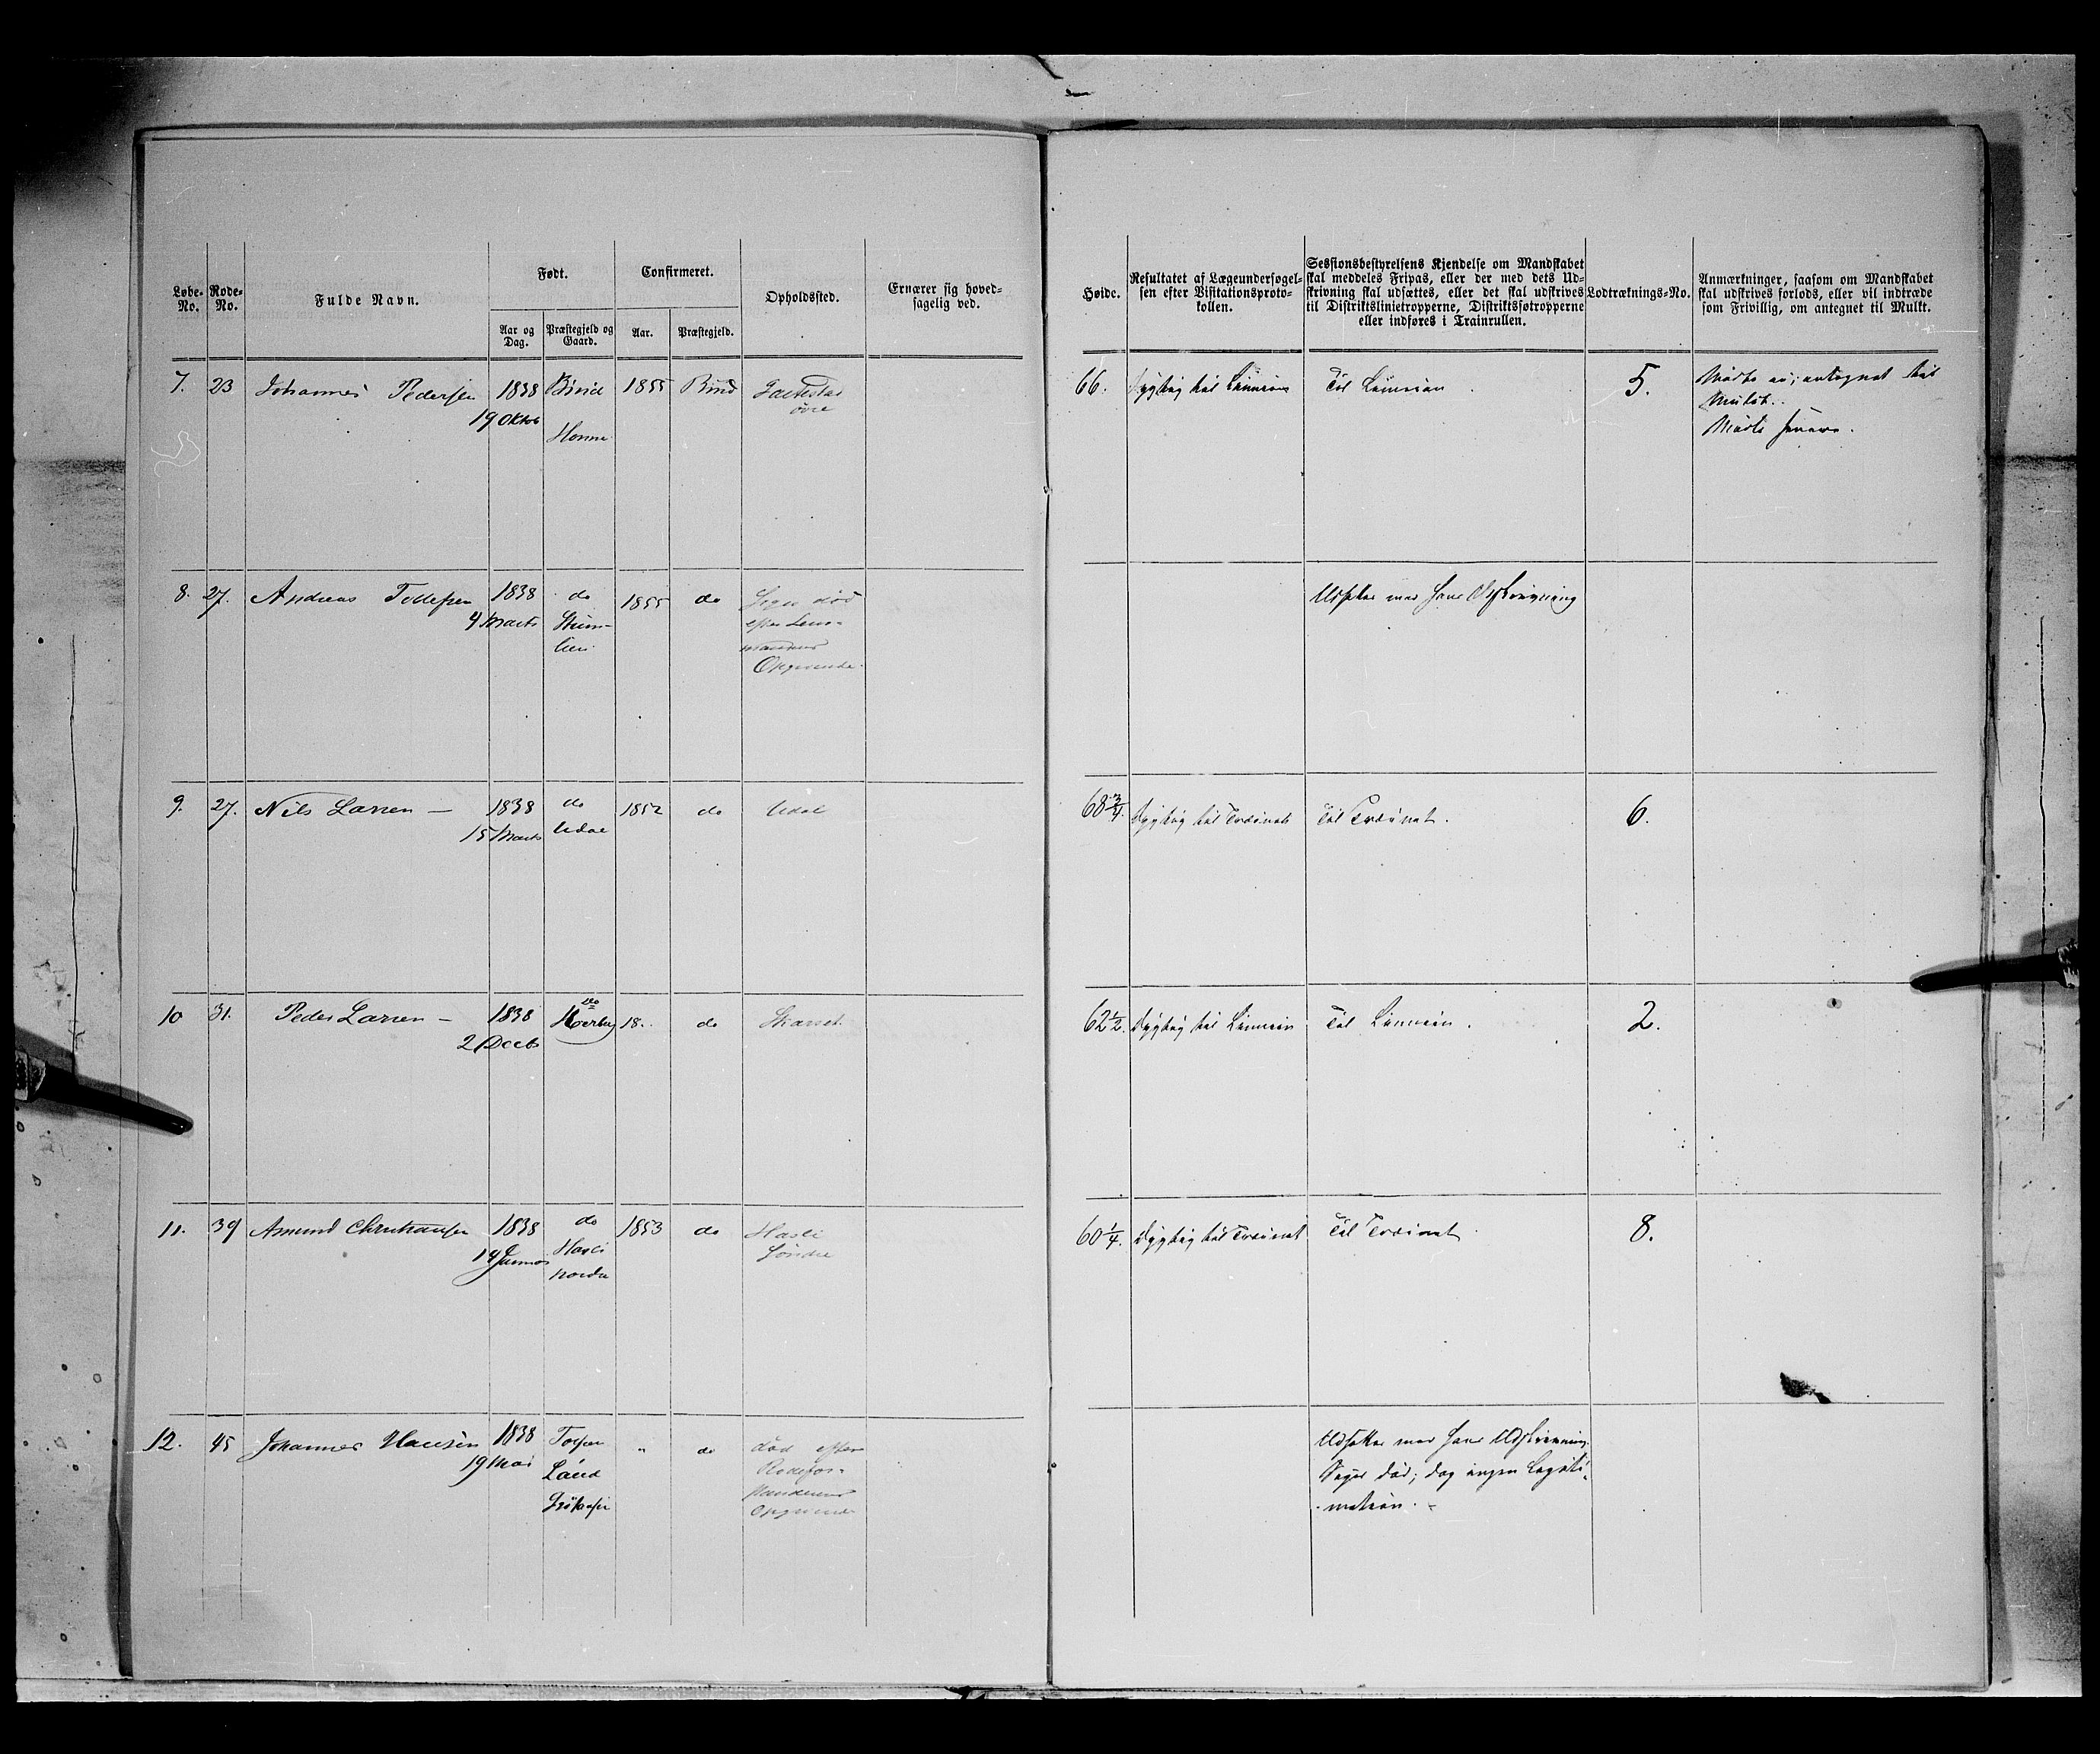 Løbe-No.
Rode-No.
Fulde Navn.
Født.
Aar og Dag.
Præstegjeld og Gaard.
Confirmeret.
Aar.
Præstegjeld.
Opholdssted.
Ernærer sig hoved-
sagelig ved.
Høide.
Resultatet af Lægeundersøgel-
sen efter Visitationsproto-
kollen.
Sessionsbestyrelsens Kjendelse om Mandskabet
skal meddeles Fripas, eller der med dets Ud-
skrivning skal udsættes, eller det skal udskrives
til Distriktslinietropperne, Distriktssøtropperne
eller indføres i Trainrullen.
Lodtræknings-No.
Anmærkninger, saasom om Mandskabet
skal udskrives forlods, eller vil indtræde
som Frivillig, om antegnet til Mulkt.
7. 23 Johannes Pedersen 1838 Birid 1855 Birid
19 Oktob
øvre
Honne
66. Dygtig til Linien Til Linien 5. Mødte ei; antegnet til
Mulkt.
Mødte senere.
8. 27. Andreas Tollefsen 1838 do 1855 do Siges död
4 Marts
efter Lens-
mandens
Opgivende.
Udsættes med hans Udskrivning
9. 27. Nils Larsen — 1838 do 1852 do Udal
15 Marts Udal
68 3/4. Dygtig til Trainet Til Trainet. 6.
10 31. Peder Larsen — 1838 do 18.. do
2 Decb
62 1/2. Dygtig til Linien Til Linien. 2.
11. 39 Asmund Christiansen 1838 do 1853 do Hasli
14 Januar Hasli Søndre
nordre
60 1/4. Dygtig til Trainet Til Trainet 8.
12. 45 Johannes Hansen 1838 " do död efter
19 Mai Land Rodefor-
standerens
Opgivende
Udsættes med hans Udskrivning.
Siges död; dog ingen Legiti-
mation. -